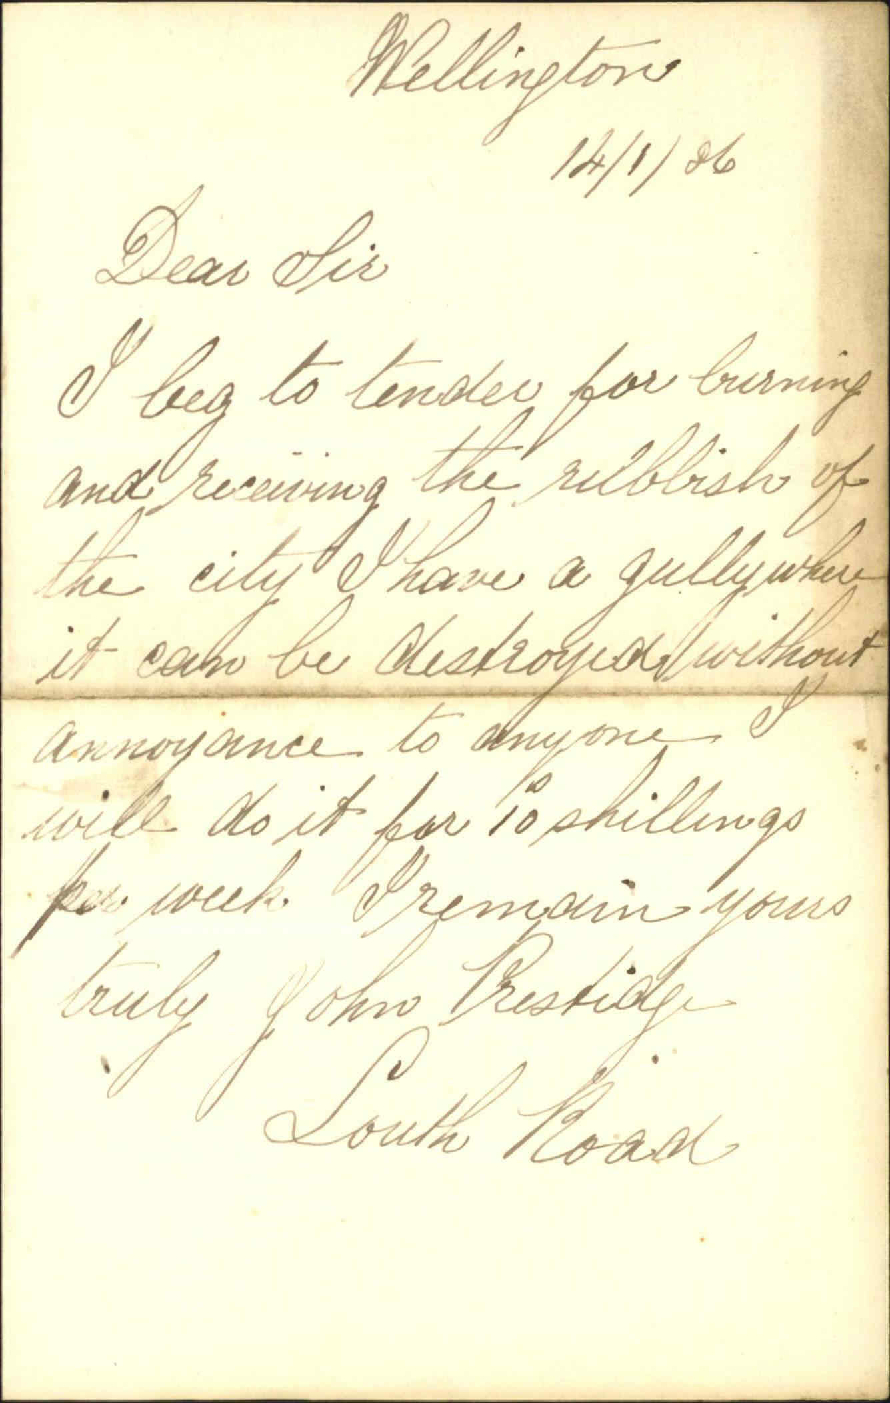 Wellington
14/1/86
Dear Sir
I beg to tender for burning
and receiving the rubbish of
the city I have a gully where
it can be destroyed without
annoyance to anyone I
will do it for 10 shillings
per week I remain yours
truly John Prestidge
South Road